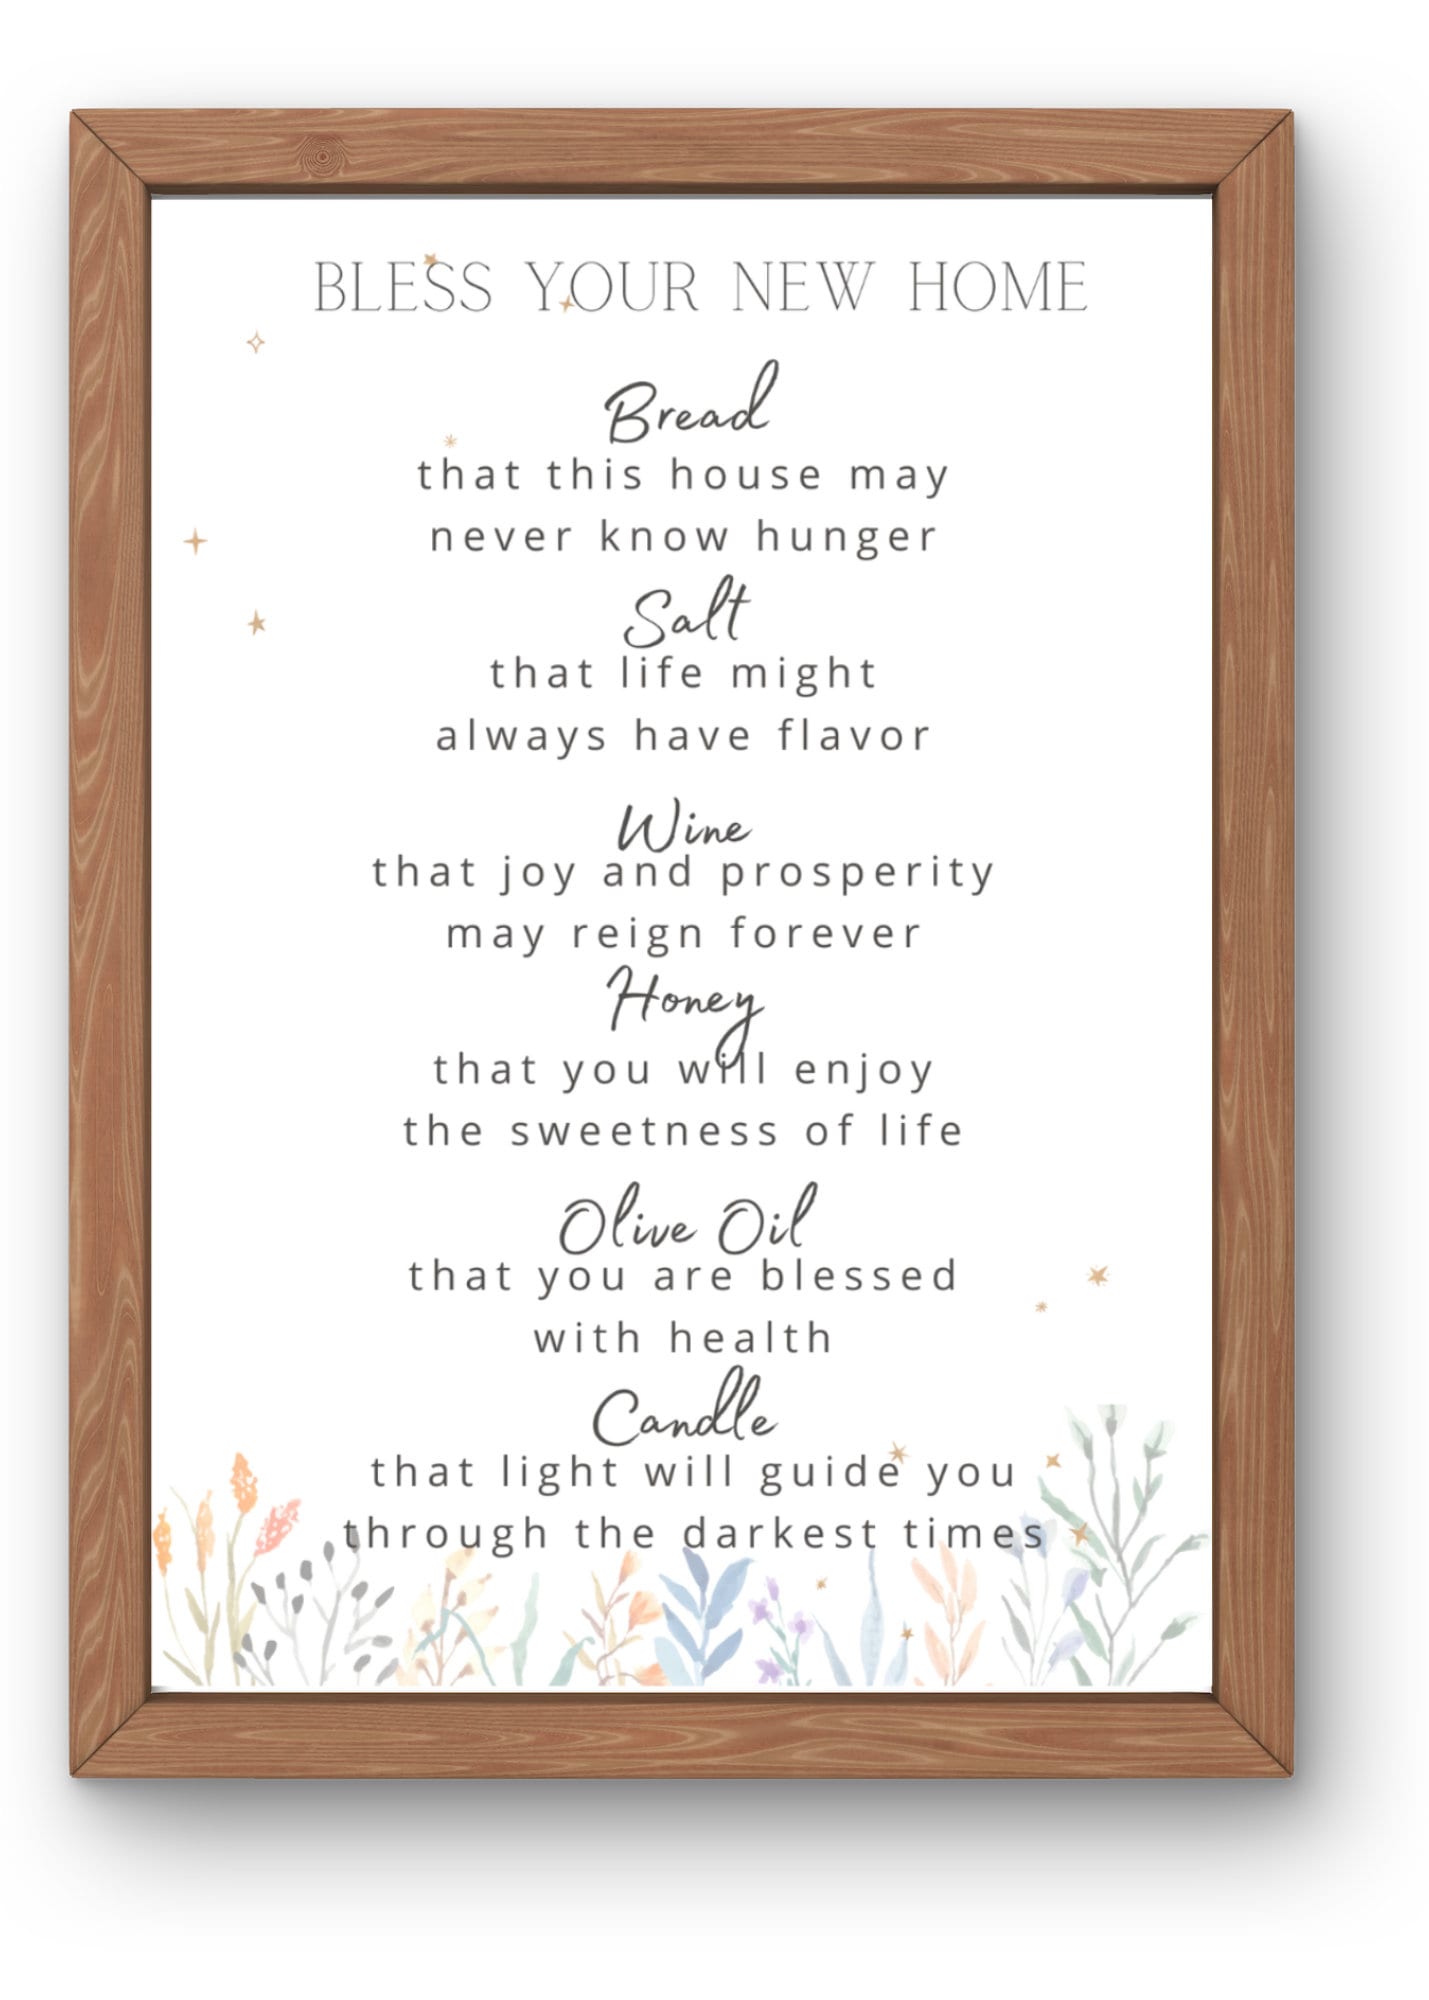 BLESS YOUR NEW HOME
Bread
that this house may
never know hunger
Salt
that life might
always have flavor
Wine
that joy and prosperity
may reign forever
Honey
that you will enjoy
the sweetness of life
Olive Oil
that you are blessed
with health
Candle
that light will guide you
through the darkest times